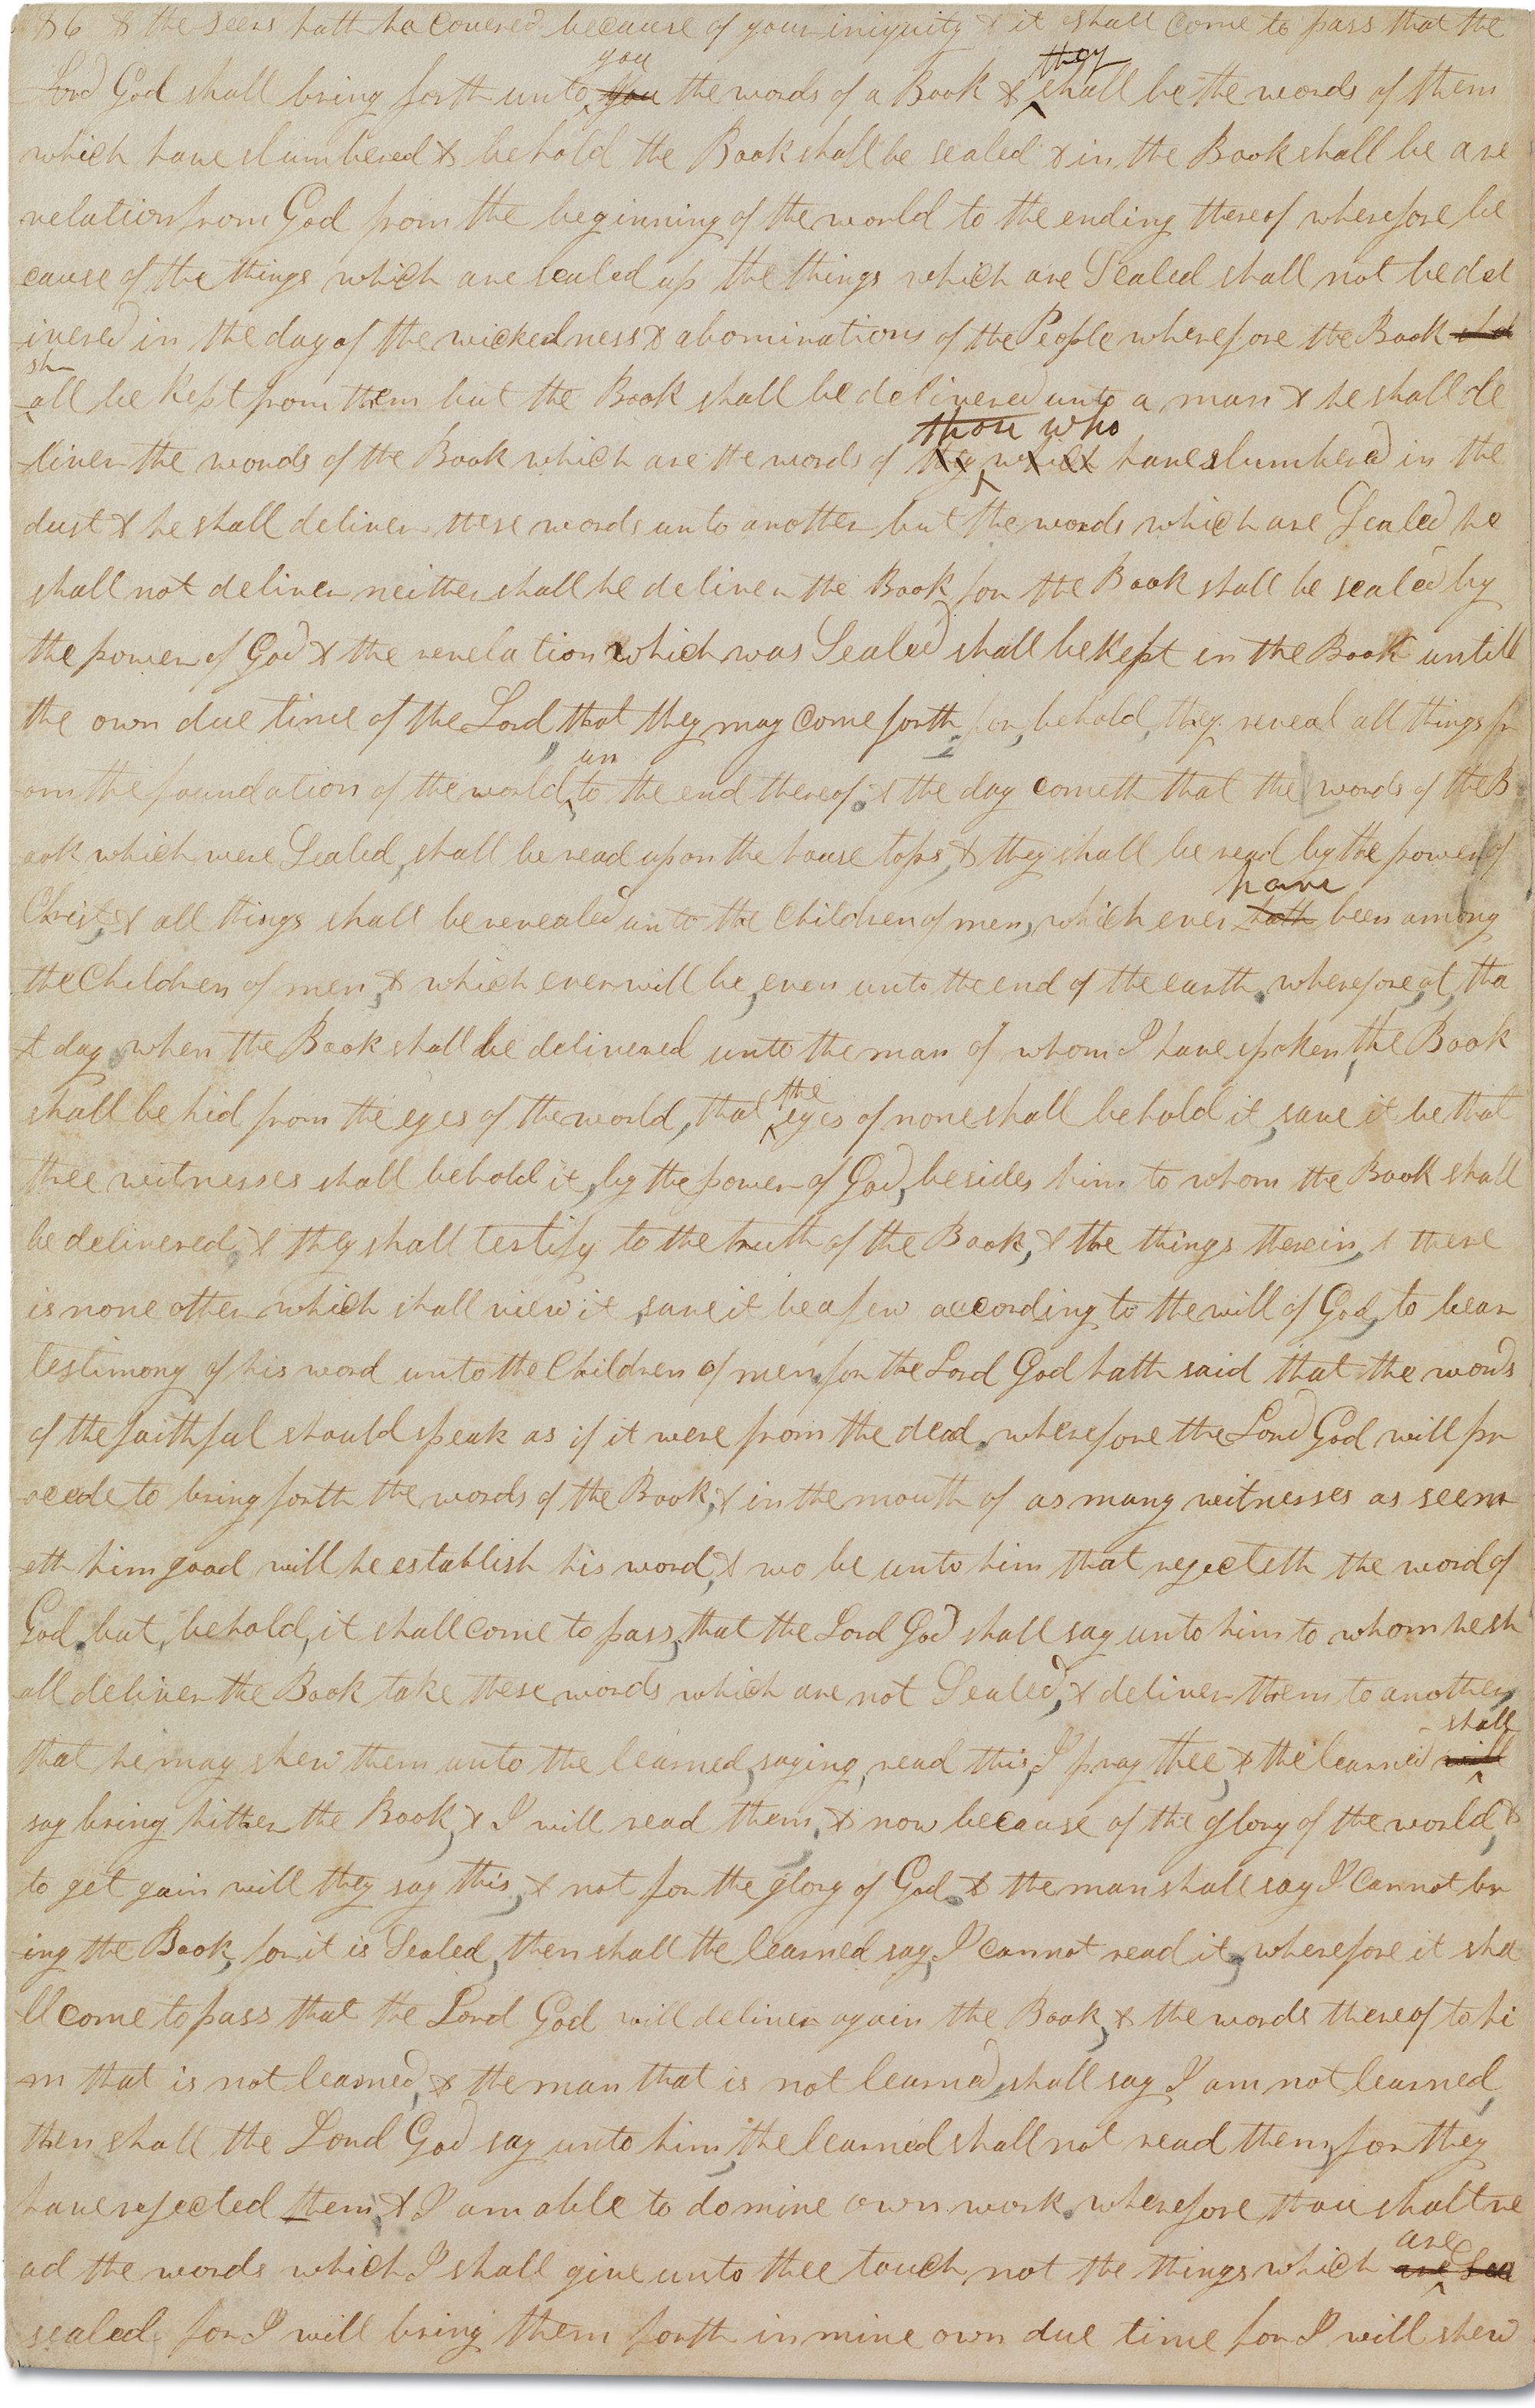 86 & the seers hath he covered because of your iniquity & it shall come to pass that the
you they
Lord God shall bring forth unto you the words of a Book & shall be the words of them
which have slumbered & behold the Book shall be sealed & in the Book shall be a re
velation from God from the beginning of the world to the ending thereof wherefore be
cause of the things which are sealed up the things which are Sealed shall not be del
ivered in the day of the wickedness & abominations of the People wherefore the Book sha
sh
all be kept from them but the Book shall be delivered unto a man & he shall de
those who
liver the words of the Book which are the words of they which have slumbered in the
dust & he shall deliver these words unto another but the words which are Sealed he
shall not deliver neither shall he deliver the Book for the Book shall be sealed by
the power of God & the revelation which was Sealed shall be kept in the Book untill
the own due time of the Lord, that they may come forth, for, behold, they reveal all things fr
un
om the foundation of the world, to the end thereof. & the day cometh that the words of the B
ook which were Sealed, shall be read upon the house tops, & they shall be read by the power of
have
Christ, & all things shall be revealed unto the Children of men, which ever hath been among
the Children of men, & which ever will be, even unto the end of the earth. wherefore, at, tha
t day when the Book shall be delivered unto the man of whom I have spoken, the Book
the
shall be hid from the eyes of the world, that eyes of none shall behold it, save it be that
three witnesses shall behold it, by the power of God, besides him to whom the Book shall
be delivered, & they shall testify to the truth of the Book, & the things therein, & there
is none other which shall view it, save it be a few according to the will of God, to bear
testimony of his word unto the Children of men, for the Lord God hath said that the words
of the faithful should speak as if it were from the dead. wherefore the Lord God will pr
oceede to bring forth the words of the Book, & in the mouth of as many witnesses as seem
eth him good will he establish his word, & wo be unto him that rejecteth the word of
God. but, behold, it shall come to pass, that the Lord God shall say unto him to whom he sh
all deliver the Book take these words which are not Sealed, & deliver them to another,
shall
that he may shew them unto the learned, saying, read this, I pray thee, & the learned will
say bring hither the Book, & I will read them, & now because of the glory of the world, &
to get gain will they say this, & not for the glory of God. & the man shall say I cannot br
ing the Book, for it is Sealed, then shall the learned say, I cannot read it, wherefore it sha
ll come to pass that the Lord God will deliver again the Book, & the words thereof to hi
m that is not learned, & the man that is not learned, shall say I am not learned,
then shall the Lord God say unto him, the learned shall not read them, for they
have rejected them, & I am able to do mine own work. wherefore thou shalt re
are
ad the words which I shall give unto thee touch not the things which are Sea
sealed for I will bring them forth in mine own due time for I will shew